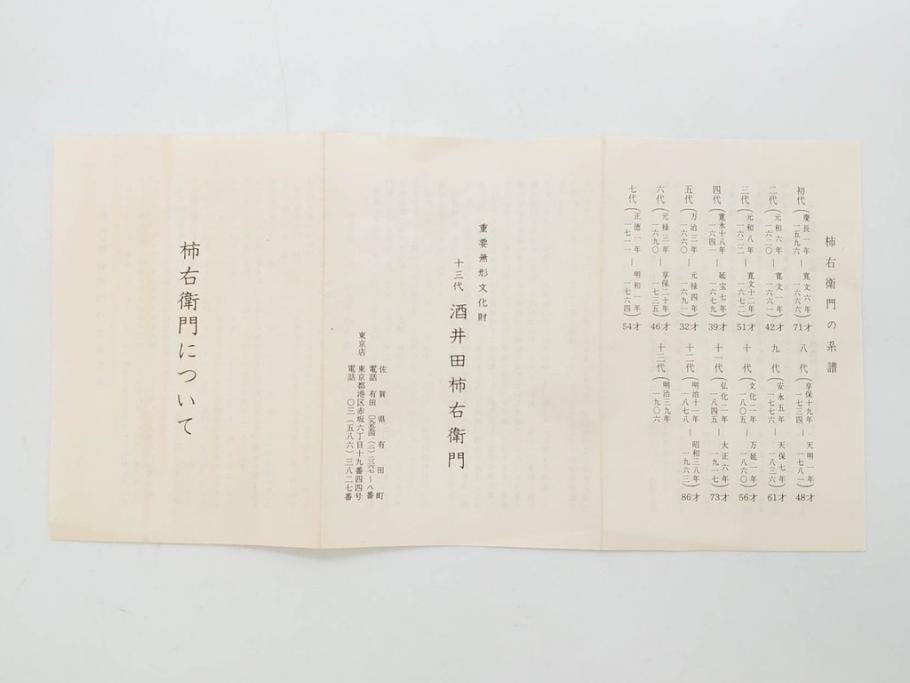 柿右衛門の系譜
初代(慶長一年一五九六―寛文六年一六六六)71才
二代(元和六年一六二〇―寛文一年一六六一)42才
三代(元和八年一六二二―寛文十二年一六七二)51才
四代(寛永十八年一六四一―延宝七年一六七九)39才
五代(万治三年一六六〇―元禄四年一六九一)32才
六代(元禄三年一六九〇―享保二十年一七三五)46才
七代(正徳一年一七一一―明和一年一七六四)54才
八代(享保十九年一七三四―天明一年一七八一)48才
九代(安永五年一七七六―天保七年一八三六)61才
十代(文化二年一八〇五―万延一年一八六〇)56才
十一代(弘化二年一八四五―大正六年一九一七)73才
十二代(明治十一年一八七八―昭和三八年一九六三)86才
十三代(明治三九年一九〇六
重要無形文化財
十三代 酒井田柿右衛門
佐賀県有田町
電話 有田
東京店 東京都港区赤坂六丁目十九番四四号
電話 〇三(五八六)三八二七番
柿右衛門について